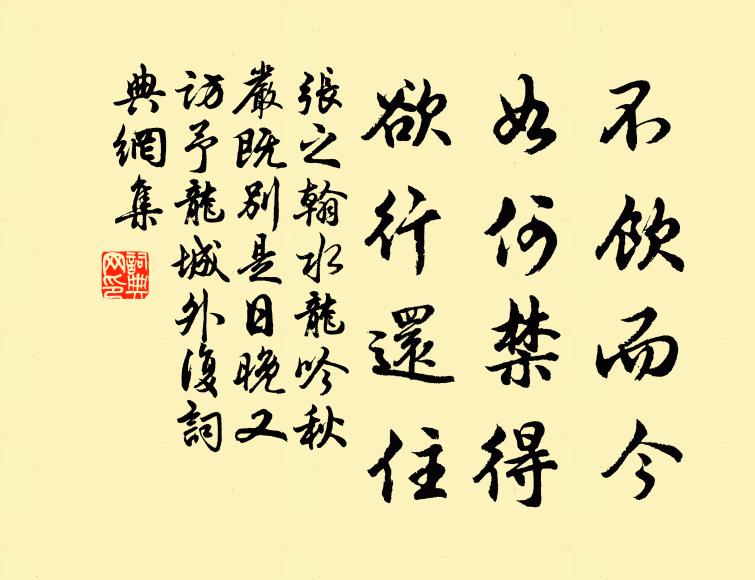 不飲而今
如何禁得
欲行還住
張之翰水龍吟秋
嚴既別是日晚又
訪予龍城外復詞
典網集
詞典
网印